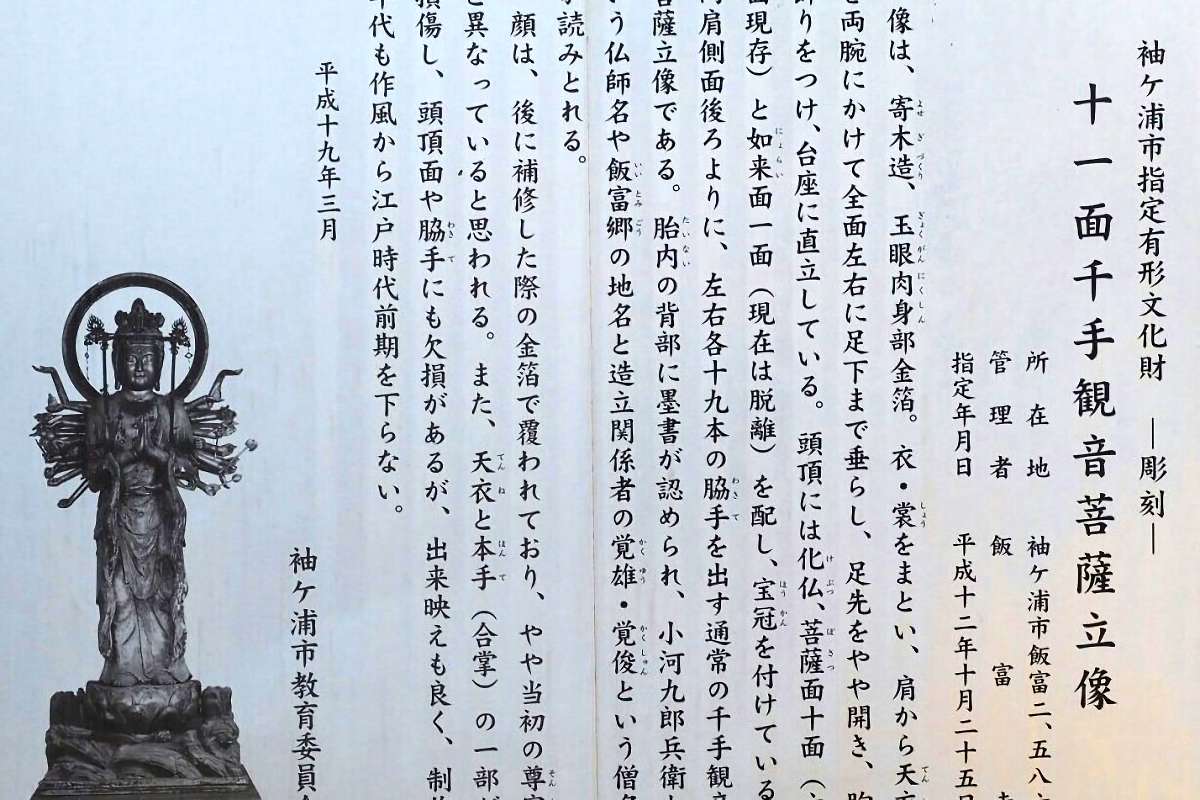 袖ケ浦市指定有形文化財 ―彫刻―
十一面千手観音菩薩立像
所在地 袖ケ浦市飯富二、五八
管理者 飯富
指定年月日 平成十二年十月二十五日
像は、寄木造、玉眼肉身部金箔。衣・裳をまとい、肩から天
を両腕にかけて全面左右に足下まで垂らし、足先をやや開き、胸
飾りをつけ、台座に直立している。頭頂には化仏、菩薩面十面（
面現存）と如来面一面（現在は脱離）を配し、宝冠を付けている
両肩側面後ろよりに、左右各十九本の脇手を出す通常の千手観音
菩薩立像である。胎内の背部に墨書が認められ、小河九郎兵衛
いう仏師名や飯富郷の地名と造立関係者の覚雄・覚俊という僧名
が読みとれる。
顔は、後に補修した際の金箔で覆われており、やや当初の尊容
と異なっていると思われる。また、天衣と本手（合掌）の一部が
損傷し、頭頂面や脇手にも欠損があるが、出来映えも良く、制作
年代も作風から江戸時代前期を下らない。
平成十九年三月
袖ケ浦市教育委員会